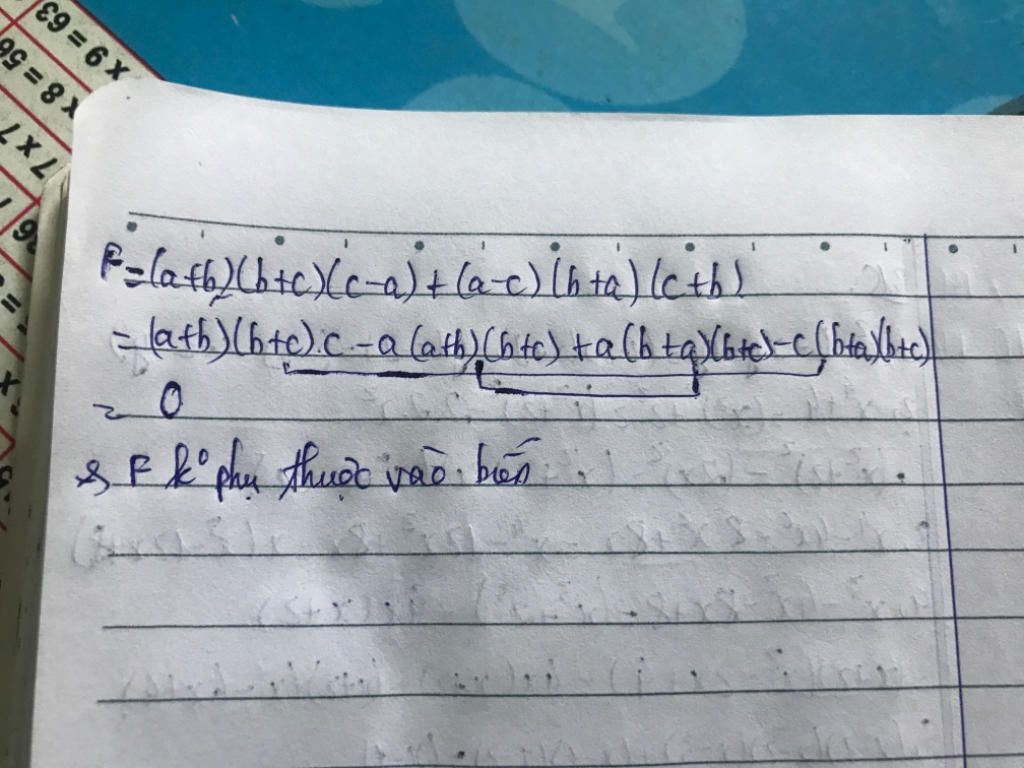 x 9 = 63
x 8 = 56
7 x 7
F = (a+b)(b+c)(c-a) + (a-c)(b+a)(c+b)
= (a+b)(b+c).c - a(a+b)(b+c) + a(b+a)(b+c) - c(b+a)(b+c)
= 0
F k° phụ thuộc vào biến